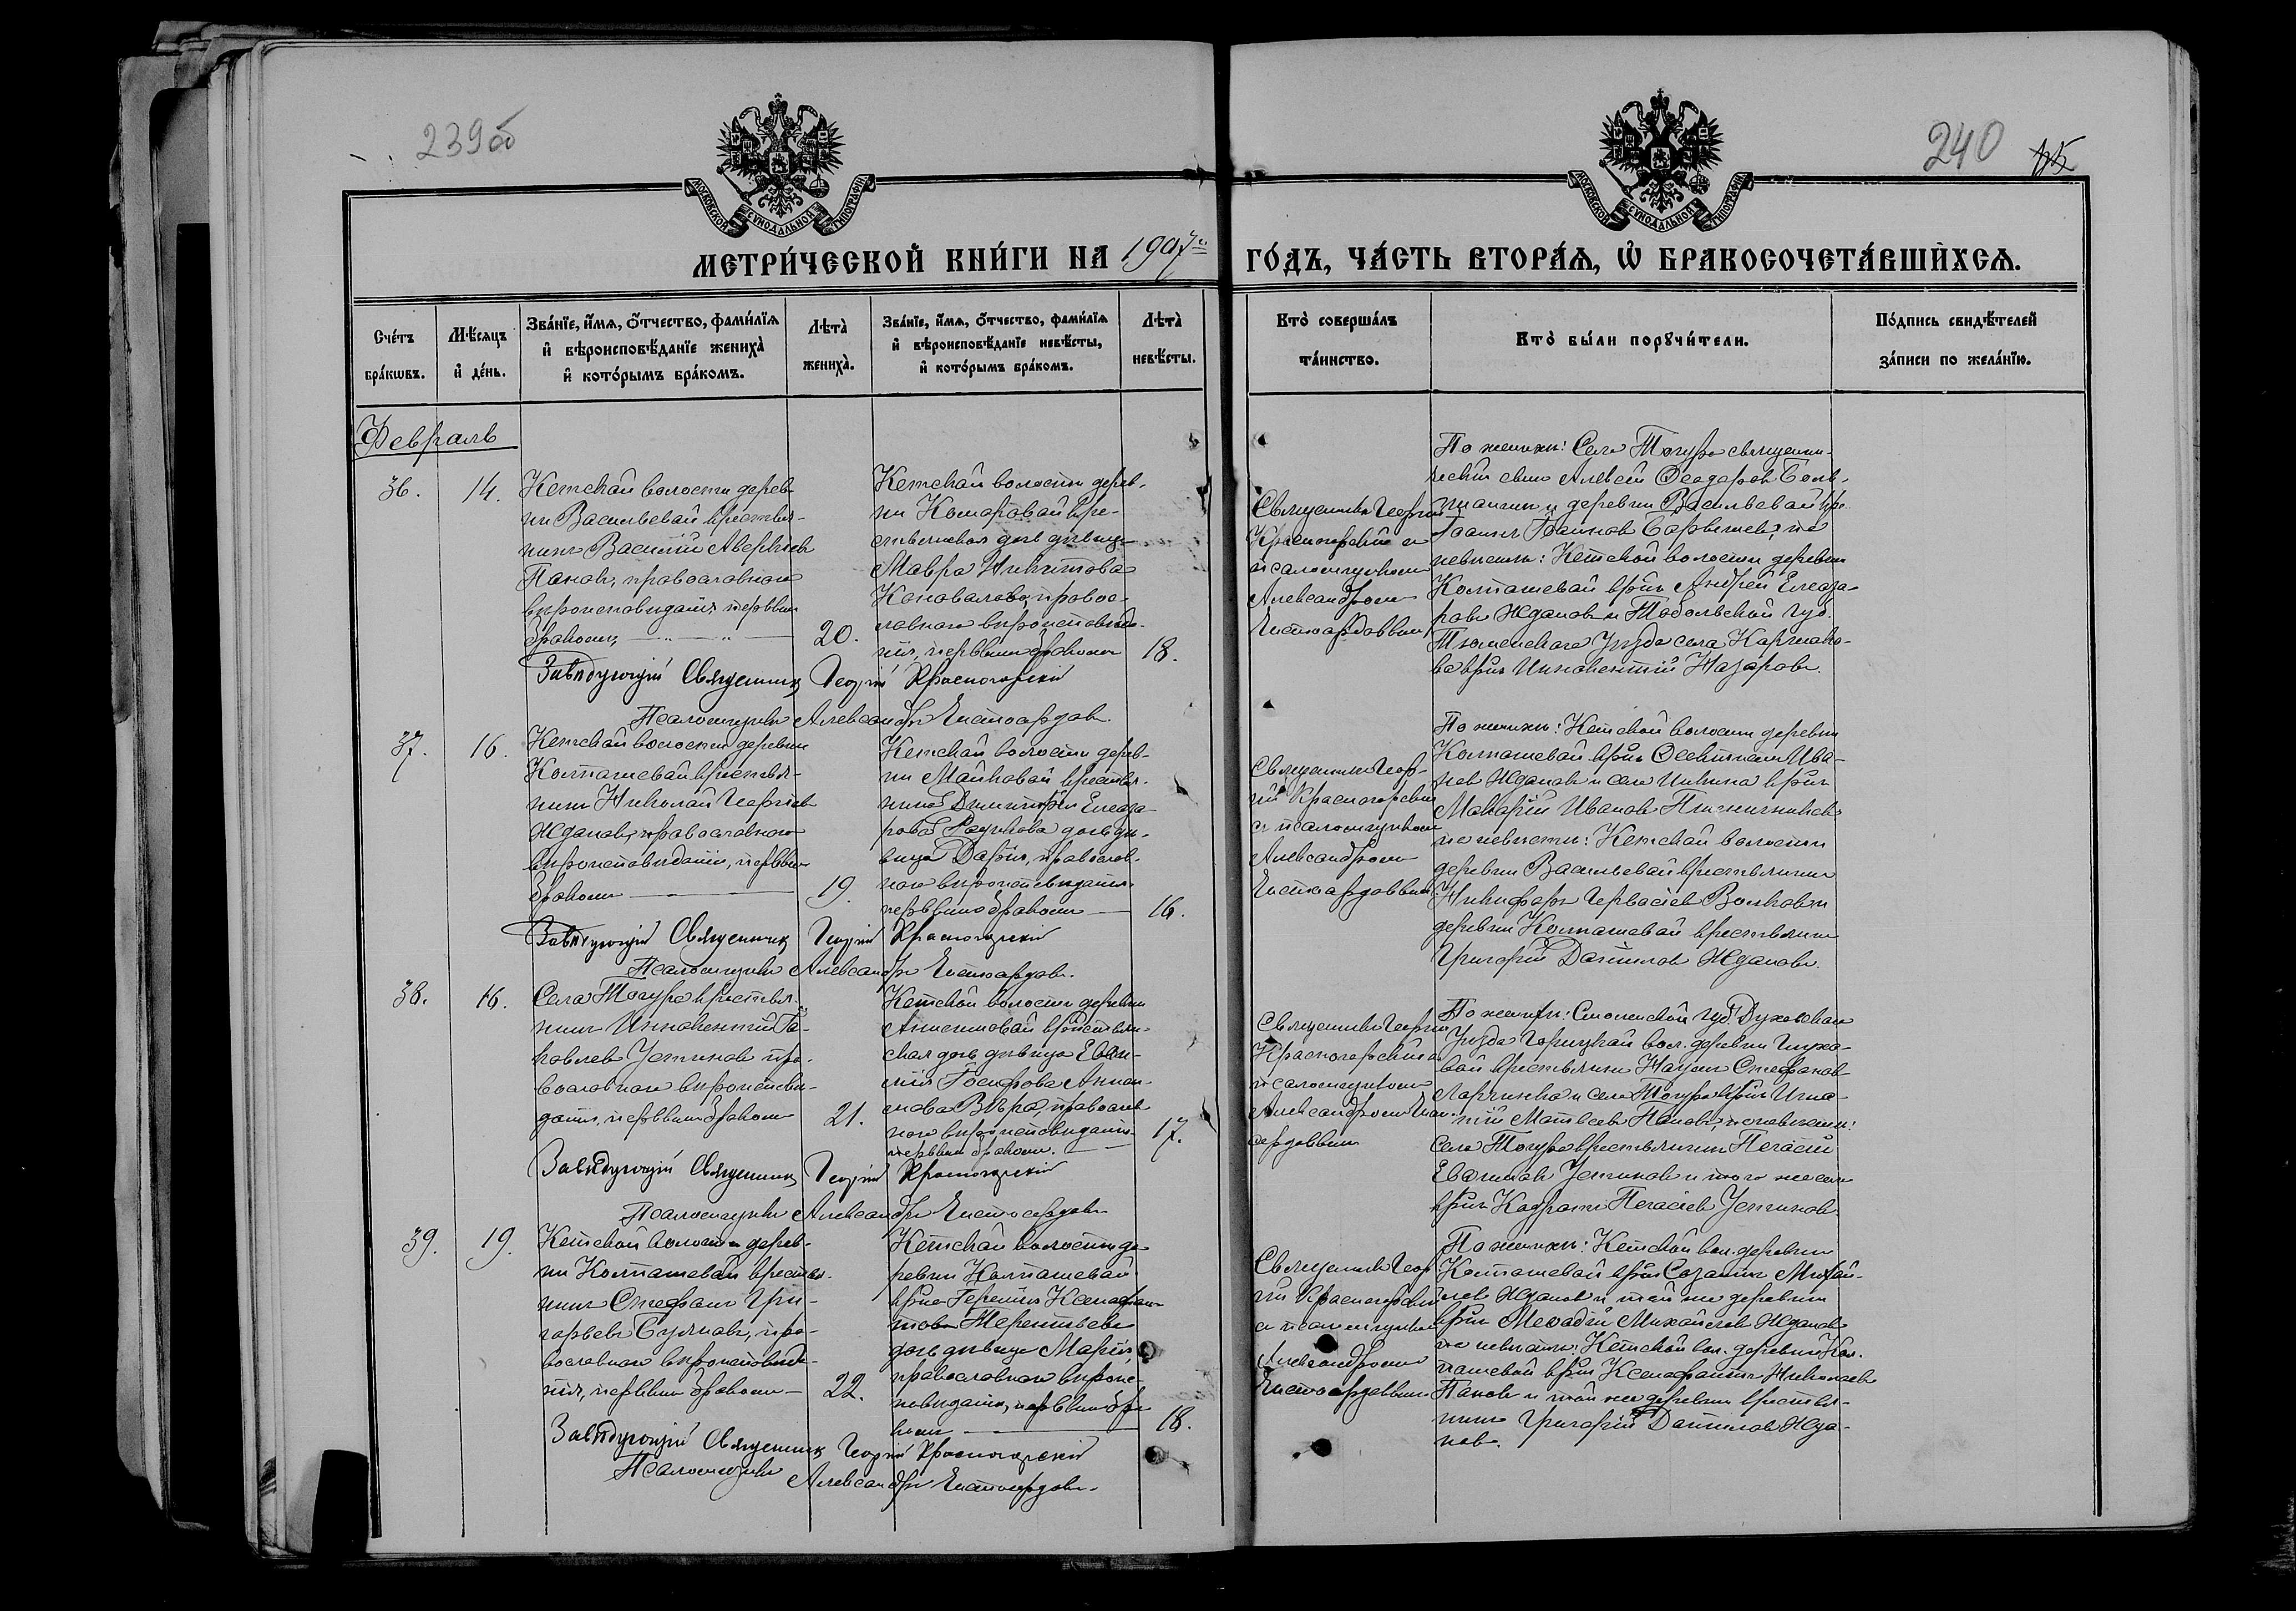 239об
240
МОСКОВСКОЙ СѴНОДАЛЬНОЙ ТИПОГРАФІИ
МОСКОВСКОЙ СѴНОДАЛЬНОЙ ТИПОГРАФІИ
МЕТРИ́ЧЕСКОЙ КНИ́ГИ НА 1907 й
ГО́ДЪ, ЧА́СТЬ ВТОРА́Ѧ, Ѡ҆ БРАКОСОЧЕТА́ВШИХСѦ.
Сче́тъ
бра́кѡвъ.
Мѣ́сяцъ
и҆ де́нь.
Зва́нїе, и҆́мѧ, ѻ҆́тчество, фами́лїѧ
и҆ вѣроисповѣ́данїе жениха̀
и҆ кото́рымъ бра́комъ.
Лѣта̀
жениха̀.
Зва́нїе, и҆́мѧ, ѻ҆́тчество, фами́лїѧ
и҆ вѣроисповѣ́данїе невѣ́сты,
и҆ кото́рымъ бра́комъ.
Лѣта̀
невѣ́сты.
Кто̀ соверша́лъ
та́инство.
Кто̀ бы́ли порꙋчи́тели.
По́дпись свидѣ́телей
за́писи по жела́нїю.
Февраль
36.
14.
Кетской волости дерев-
ни Васильевой крестья-
нинъ Василій Аверкіев
Панов, православнаго
вѣроисповѣданія первым
браком,
20.
Кетской волости дерев-
ни Комаровой кре-
стьянская дочь дѣвица
Мавра Никитова
Коновалова, правос-
лавнаго вѣроисповѣда-
нія, первым браком
18.
Священник Георгій
Красногорскій с
псаломщиком
Александром
По жениху: Села Тогура священни-
ческій сын Алексѣй Феодоров
и деревни Васильевой кр.
невѣстѣ: Кетской волости деревни
Колпашевой крн. Андрей Елеаза-
ров Жданов и Тобольской губ.
Тюменскаго Уѣзда села
крн. Иннокентій Назаров.
Завѣдующій Священникъ Георгій Красногорскій
Псаломщикъ Александръ
37.
16.
Кетской волости деревни
Колпашевой крестья-
нинъ Николай Георгіев
Жданов, православнаго
вѣроисповѣданія, первым
браком
19.
Кетской волости дерев-
ни Майковой крестья-
нина Димитрія Елеаза-
рова дочь дѣ-
вица Дарія, православ-
наго вѣроисповѣданія
первым браком
16.
Священник Геор-
гій Красногорскій
с псаломщиком
Александром
По жениху: Кетской волости деревни
Колпашевой крн. Ива-
нов Жданов и села Инкина крн.
Макарій Иванов
по невѣстѣ: Кетской волости
деревни Васильевой крестьянин
Никифор Гервасіев Волков и
деревни Колпашевой крестьянин
Григорій Данилов Жданов.
Завѣдующій Священникъ Георгій Красногорскій
Псаломщикъ Александръ
38.
16.
Села Тогура крестья-
нинъ Иннокентій Іа-
ковлев Устинов пра-
вославнаго вѣроисповѣ-
данія, первым браком
21.
Кетской волости деревни
крестьян-
ская дочь дѣвица
Іосифова
Вѣра, православ-
наго вѣроисповѣданія
первым браком.
17.
Священник Георгій
Красногорскій с
псаломщиком
Александром
По жениху: Смоленской губ. Духовскаго
Уѣзда вол. деревни
крестьянин Наум Стефанов
и села Тогура крн. Игна-
тій Матвѣев Панов, по невѣстѣ:
Села Тогура крестьянин
Устинов и того же села
крн. Устинов.
Завѣдующій Священникъ Георгій Красногорскій
Псаломщикъ Александръ
39.
19.
Кетской волости дерев-
ни Колпашевой крестья-
нинъ Стефан Гри-
горьев пра-
вославнаго вѣроисповѣда-
нія, первым браком
22.
Кетской волости де-
ревни Колпашевой
Ксенофон-
това Терентьева
дочь дѣвица Марія,
православнаго вѣроис-
повѣданія, первым бра-
ком
18.
Священник Геор-
гій Красногорскій
с псаломщиком
Александром
По жениху: Кетской вол. деревни
Колпашевой крн. Созонт Михай-
лов Жданов и той же деревни
крн. Меѳодій Михайлов Жданов
по невѣстѣ: Кетской вол. деревни Кол-
пашевой крн. Ксенофонт Николаев
Панов и той же деревни крестья-
нин Григорій Данилов Жда-
нов.
Завѣдующій Священникъ Георгій Красногорскій
Псаломщикъ
Александръ